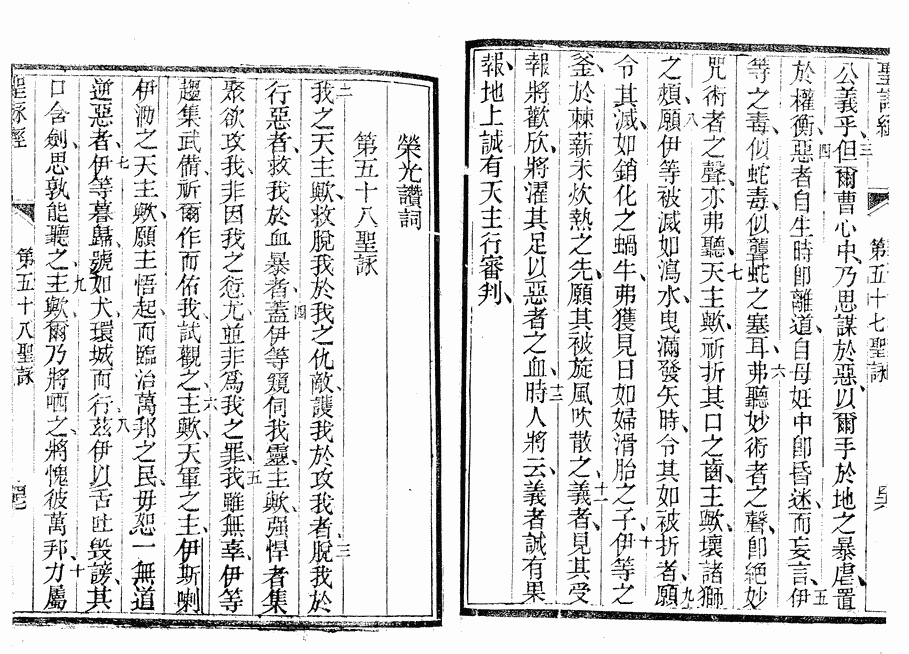 聖詠經
第五十七聖詠
公義乎、三但爾曹心中、乃思謀於惡、以爾手於地之暴虐、置
於權衡、四惡者自生時卽離道、自母妊中卽昏迷而妄言、五伊
等之毒、似蛇毒、似聾蛇之塞耳、六弗聽妙術者之聲、卽絕妙
咒術者之聲、亦弗聽、七天主歟、祈折其口之齒、主歟、壞諸獅
之頰、八願伊等被滅如瀉水、曳滿發矢時、令其如被折者、九願
令其滅、如銷化之蝸牛、弗獲見日、如婦滑胎之子、十伊等之
釜、於棘薪未炊熱之先、願其被旋風吹散之、十一義者、見其受
報、將歡欣、將濯其足以惡者之血、十二時人將云、義者誠有果
報、地上誠有天主行審判、
榮光讚詞
第五十八聖詠
二我之天主歟、救脫我於我之仇敵、護我於攻我者、三脫我於
行惡者、救我於血暴者、四蓋伊等窺伺我靈、主歟、强悍者集
聚欲攻我、非因我之愆尤、並非爲我之罪、五我雖無辜、伊等
趨集武備、祈爾作而佑我、試觀之、六主歟、天軍之主、伊斯喇
伊泐之天主歟、願主悟起而臨治萬邦之民、毋恕一無道
逆惡者、七伊等暮歸、號如犬、環城而行、八茲伊以舌吐毀謗、其
口含劍、思孰能聽之、九主歟、爾乃將哂之、將愧彼萬邦、十力屬
聖詠經
第五十八聖詠